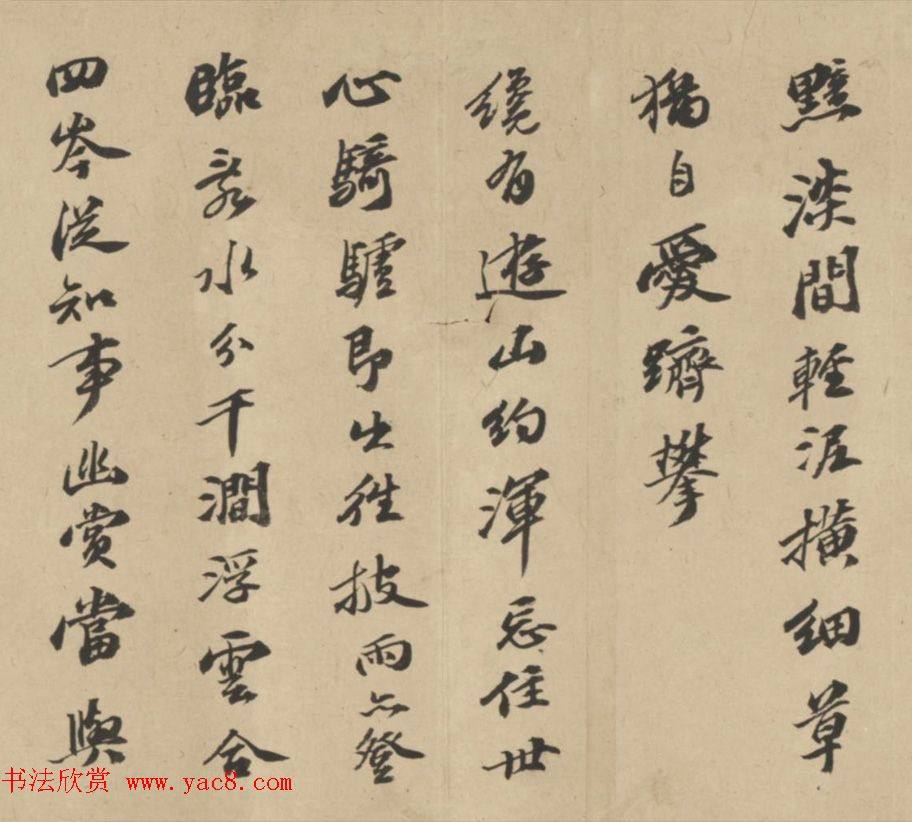 染間輕泥橫細草
猶自愛躋攀
纔有遊山約渾忘住世
心騎驢即出徃披雨亦登
臨亂水分千澗浮雲合
四岑從知事幽賞當與
书法欣赏 www.yac8.com